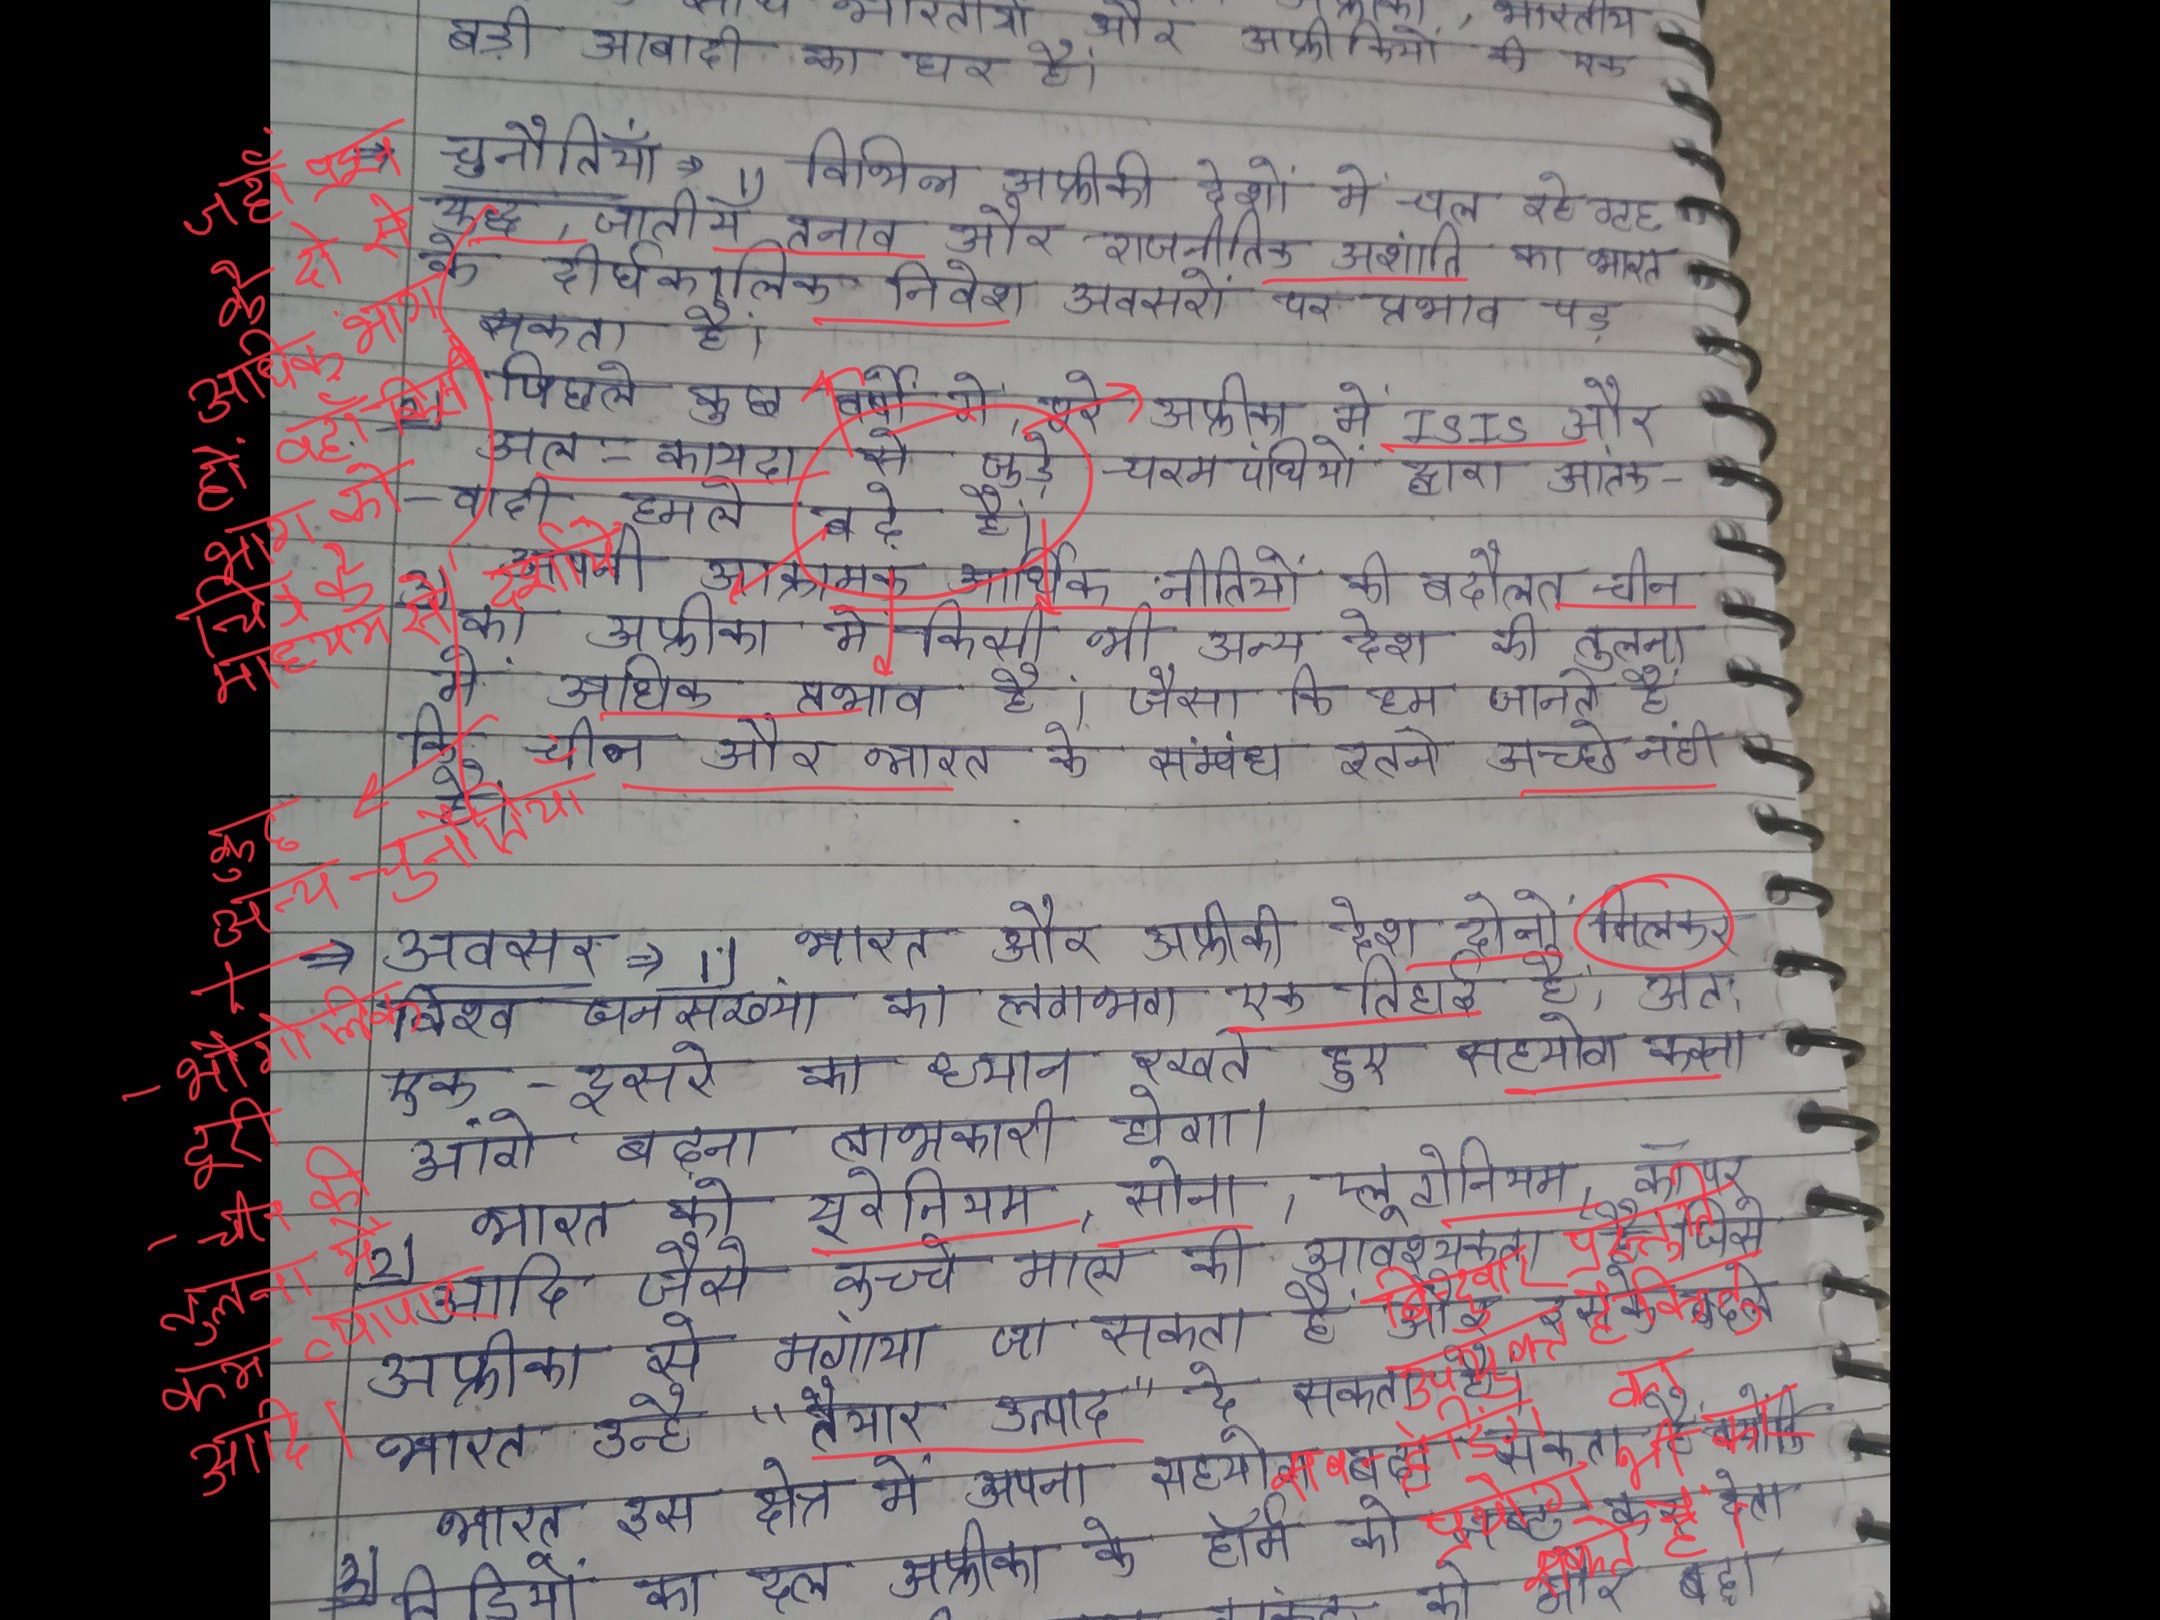 साथ भारतीयों और अफ्रीकियों की एक
बड़ी आबादी का घर है।
चुनौतियाँ ⇒ 1) विभिन्न अफ्रीकी देशों में चल रहे गृह
युद्ध, जातीय तनाव और राजनीतिक अशांति का भारत
के दीर्घकालिक निवेश अवसरों पर प्रभाव पड़
सकता है।
2) पिछले कुछ वर्षों में, पूरे अफ्रीका में ISIS और
अल-कायदा से जुड़े चरमपंथियों द्वारा आतंक-
-वादी हमले बढ़े हैं।
3) अपनी आक्रामक आर्थिक नीतियों की बदौलत चीन
का अफ्रीका में किसी भी अन्य देश की तुलना
में अधिक प्रभाव है। जैसा कि हम जानते हैं
कि चीन और भारत के संम्बंध इतने अच्छे नंही
है।
⇒ अवसर ⇒ 1) भारत और अफ्रीकी देश दोनों मिलकर
विश्व जनसंख्या का लगभग एक तिहाई है, अतः
एक-दूसरे का ध्यान रखते हुए सहयोग करना
आंगे बढ़ना लाभकारी होगा।
2) भारत को यूरेनियम, सोना, प्लूटोनियम, कॉपर
आदि जैसे कच्चे माल की आवश्यकता है जिसे
अफ्रीका से मगांया जा सकता है और इसके बदले
भारत उन्हें "तैयार उत्पाद" दे सकता है।
3) भारत इस क्षेत्र में अपना सहयोग बढ़ा सकता है, क्योंकि
टिड्डियों का दल अफ्रीका के हॉर्म को नष्ट कर देता
को और बढ़ा
जहाँ प्रश्न
के दो से
अधिक भाग
हों वहाँ किसी
भाग को
चित्र के
माध्यम से
दर्शायें
कुछ
अन्य चुनौतियां
- भौगोलिक
दूरी
- चीन की
तुलना में
कम व्यापार
आदि।
बिंदुवार प्रस्तुति
उपयुक्त है
सब हेडिंग का
प्रयोग भी कर
सकते हैं।